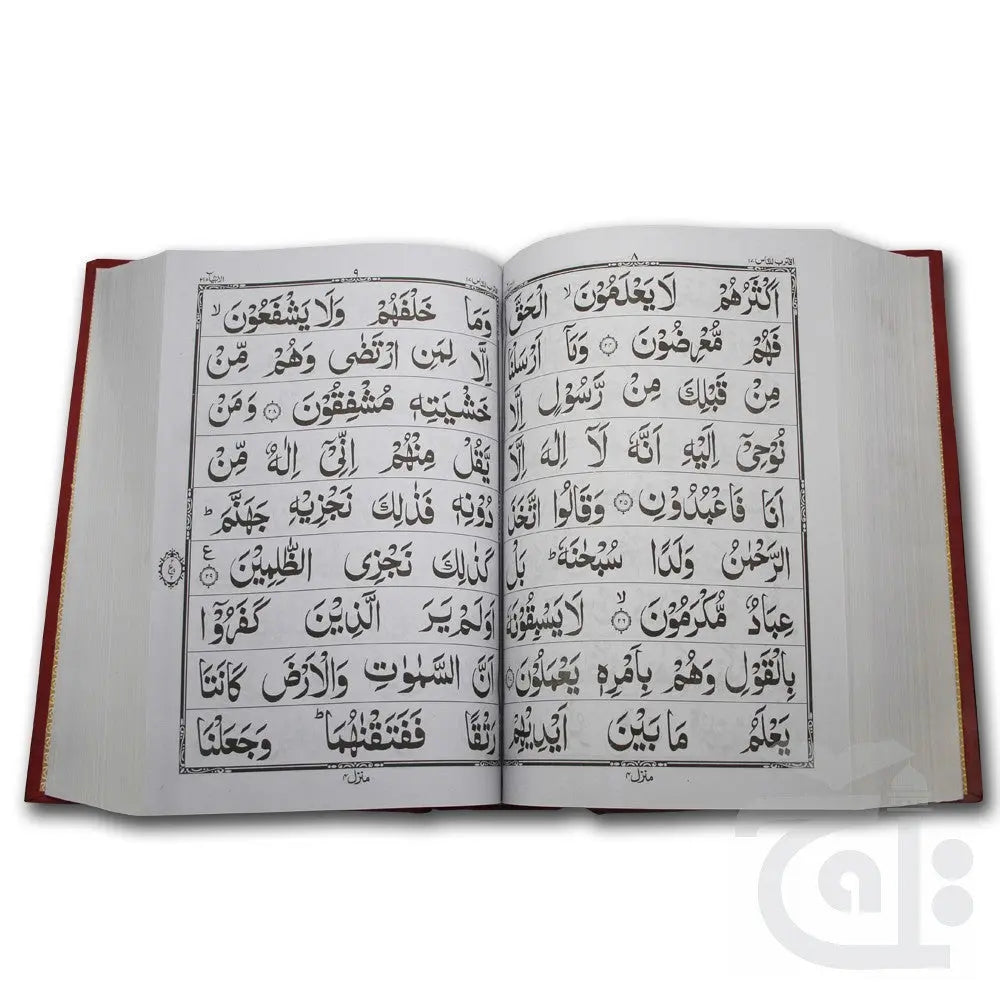 اقترب للناس ١٧
٨
اَكْثَرُهُمْ لَا يَعْلَمُوْنَ ۙ الْحَقَّ
فَهُمْ مُّعْرِضُوْنَ ﴿٢٤﴾ وَمَآ اَرْسَلْنَا
مِنْ قَبْلِكَ مِنْ رَّسُوْلٍ اِلَّا
نُوْحِيْٓ اِلَيْهِ اَنَّهٗ لَآ اِلٰهَ اِلَّآ
اَنَا فَاعْبُدُوْنِ ﴿٢٥﴾ وَقَالُوا اتَّخَذَ
الرَّحْمٰنُ وَلَدًا سُبْحٰنَهٗ ؕ بَلْ
عِبَادٌ مُّكْرَمُوْنَ ۙ﴿٢٦﴾ لَا يَسْبِقُوْنَهٗ
بِالْقَوْلِ وَهُمْ بِاَمْرِهٖ يَعْمَلُوْنَ ﴿٢٧﴾
يَعْلَمُ مَا بَيْنَ اَيْدِيْهِمْ
منزل ٤
٩
الانبياء ٢١
وَمَا خَلْفَهُمْ وَلَا يَشْفَعُوْنَ ۙ
اِلَّا لِمَنِ ارْتَضٰى وَهُمْ مِّنْ
خَشْيَتِهٖ مُشْفِقُوْنَ ﴿٢٨﴾ وَمَنْ
يَّقُلْ مِنْهُمْ اِنِّيْٓ اِلٰهٌ مِّنْ
دُوْنِهٖ فَذٰلِكَ نَجْزِيْهِ جَهَنَّمَ ؕ
كَذٰلِكَ نَجْزِي الظّٰلِمِيْنَ ﴿٢٩﴾ ع
اَوَلَمْ يَرَ الَّذِيْنَ كَفَرُوْٓا
اَنَّ السَّمٰوٰتِ وَالْاَرْضَ كَانَتَا
رَتْقًا فَفَتَقْنٰهُمَا ؕ وَجَعَلْنَا
منزل ٤